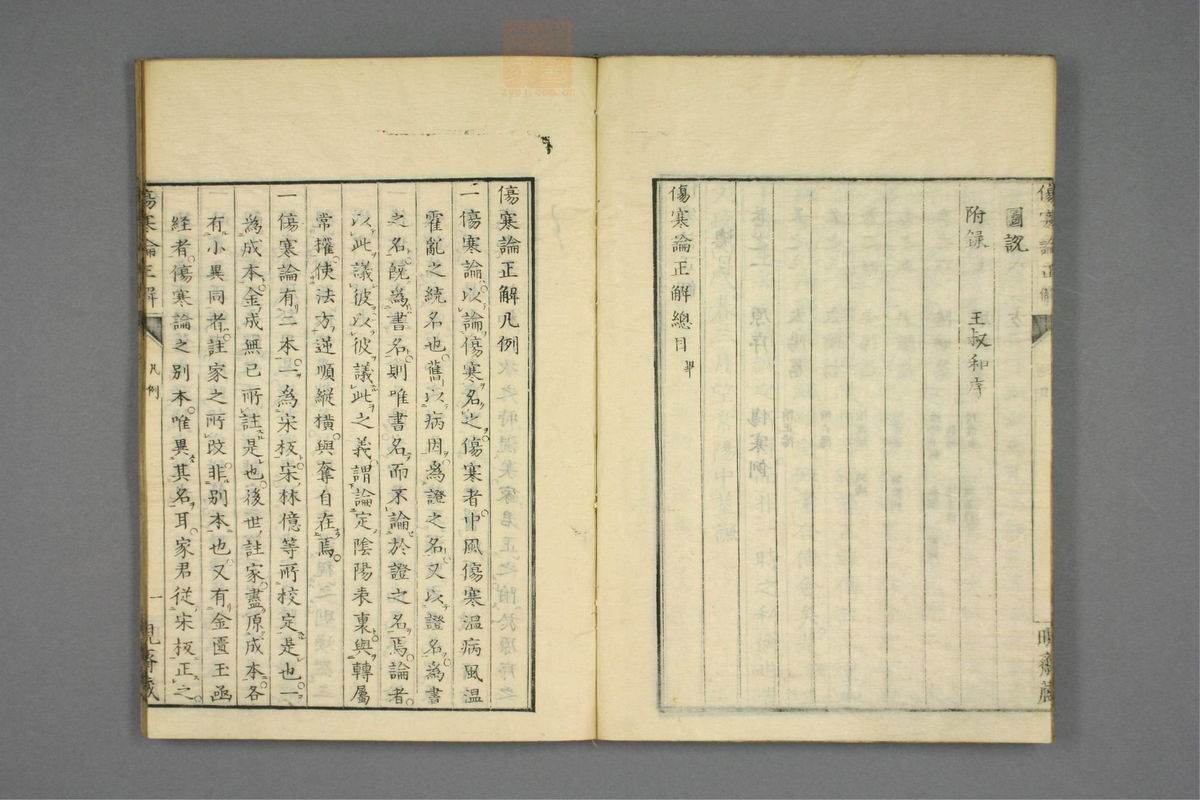 傷寒論正解
圖說
附錄
王叔和序
傷寒論正解總目 畢
傷寒論正解凡例
一傷寒論以論傷寒名之傷寒者中風傷寒温病風温
霍亂之統名也舊以病因爲證之名又以證名爲書
之名旣爲書名則唯書名而不論於證之名焉論者
以此議彼以彼議此之義謂論定陰陽表裏與轉屬
常權使法方逆順縱橫與奪自在焉
一傷寒論有二本一爲宋板宋林億等所校定是也一
爲成本金成無已所註是也後世註家盡原成本各
有小異同者註家之所改非別本也又有金匱玉函
経者傷寒論之別本唯異其名耳家君従宋板正之
傷寒論正解
凡例
一